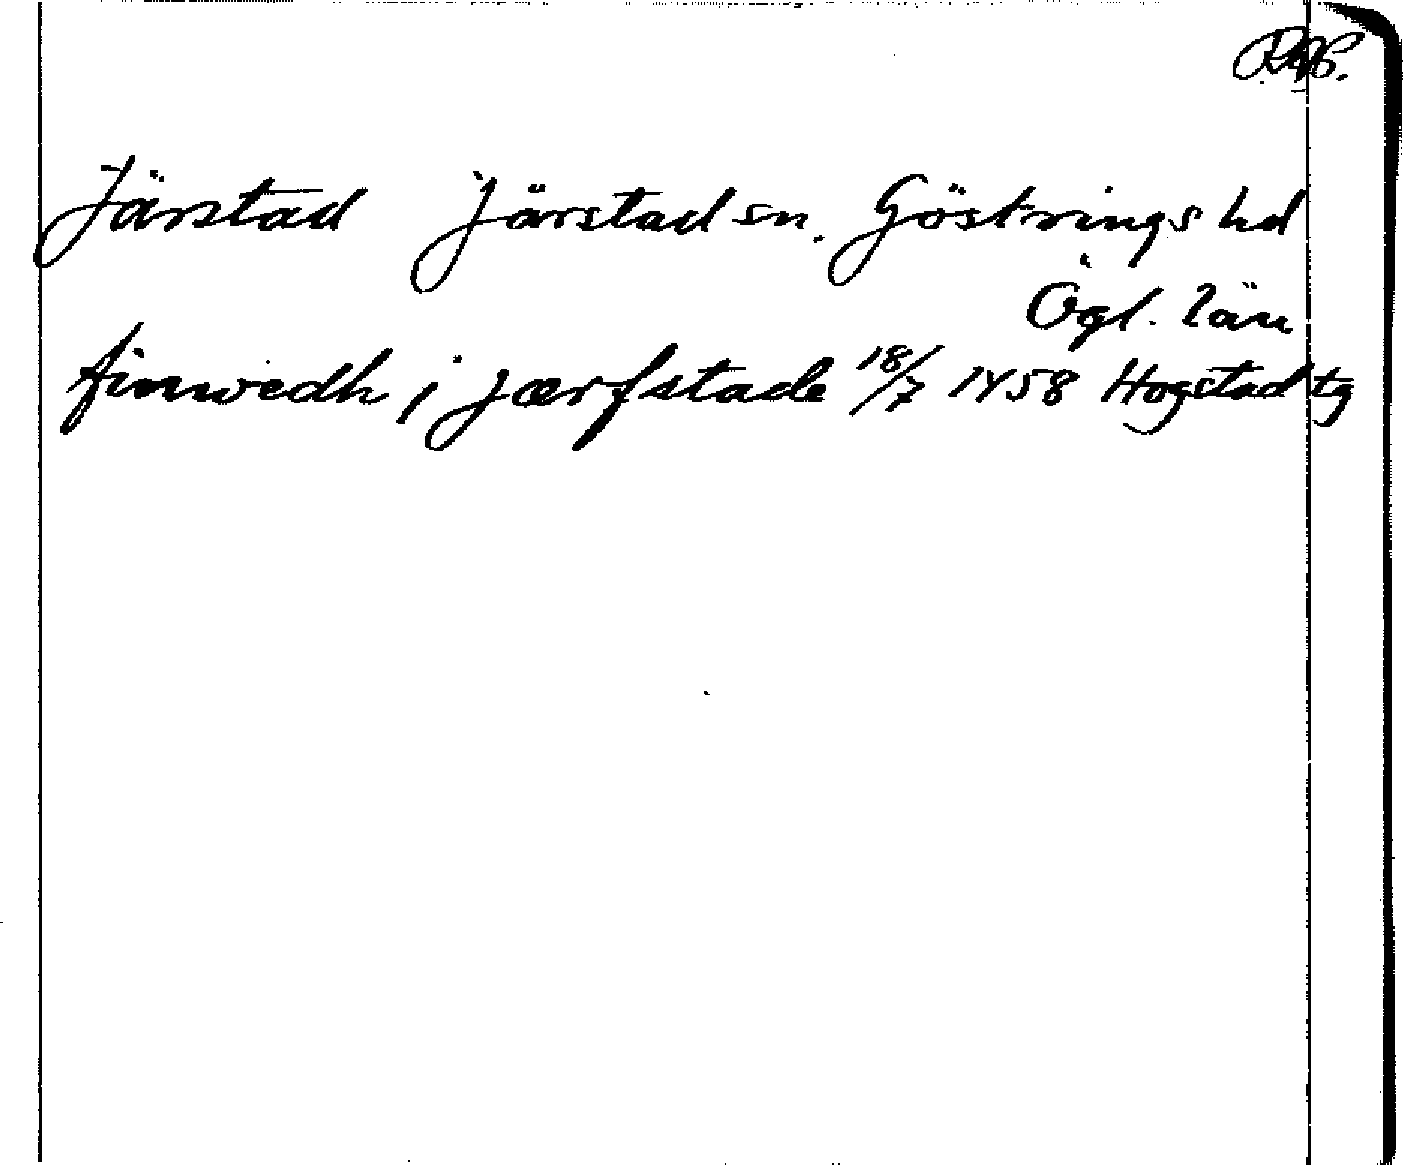 Järstad Järstad sn. Göstrings hd
Ögl. län
finwedh i jærfstade 18/7 1458 Hogstad tg